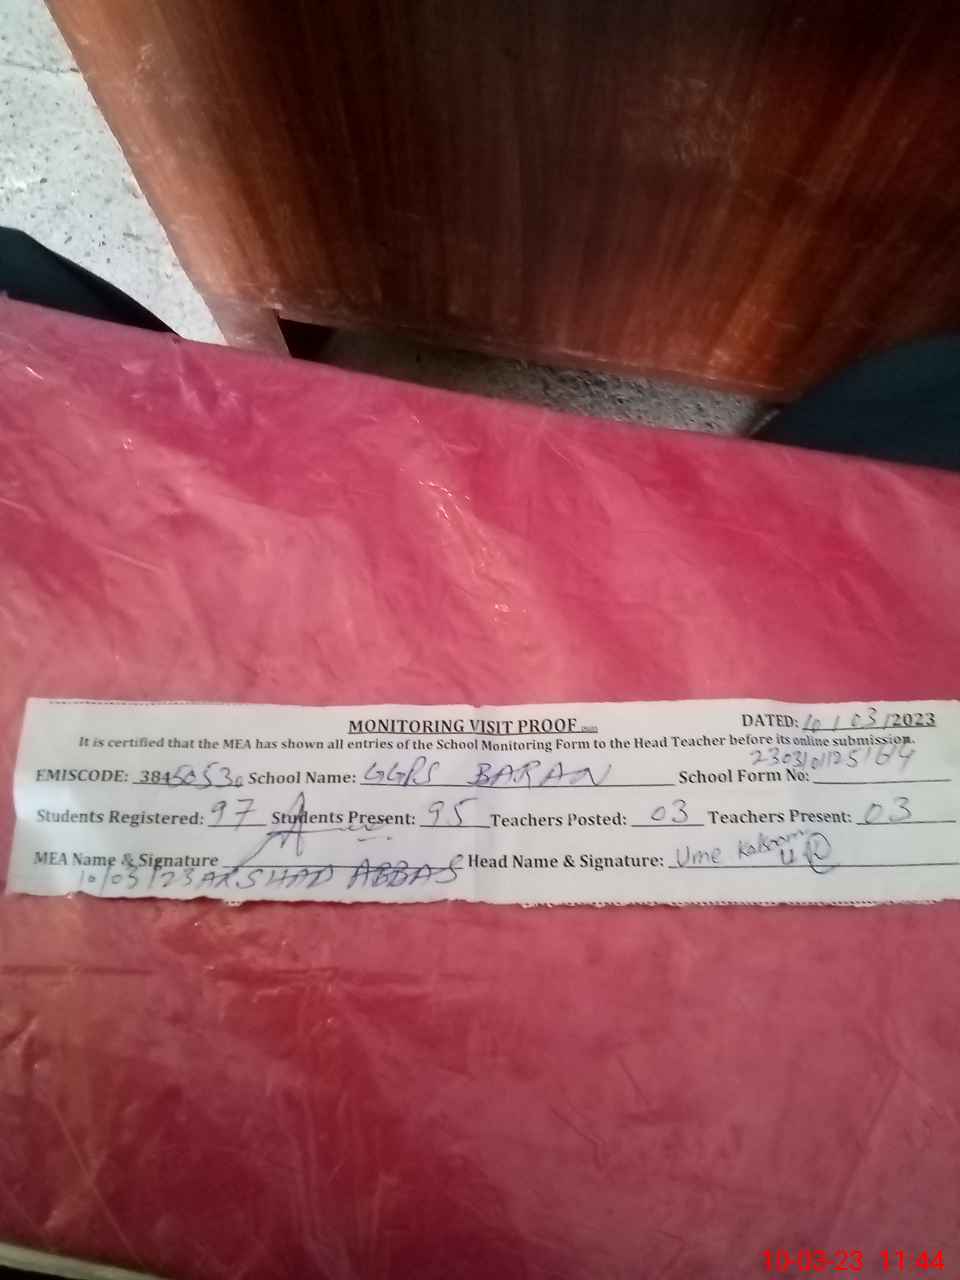 MONITORING VISIT PROOF
DATED: 10/03/2023
It is certified that the MEA has shown all entries of the School Monitoring Form to the Head Teacher before its online submission.
EMISCODE: 38450530 School Name: GGPS BARAN School Form No: 2303101125164
Students Registered: 97 Students Present: 95 Teachers Posted: 03 Teachers Present: 03
MEA Name & Signature Head Name & Signature: Ume Kalsoom
10/03/23 ARSHAD ABBAS
10-03-23 11:44